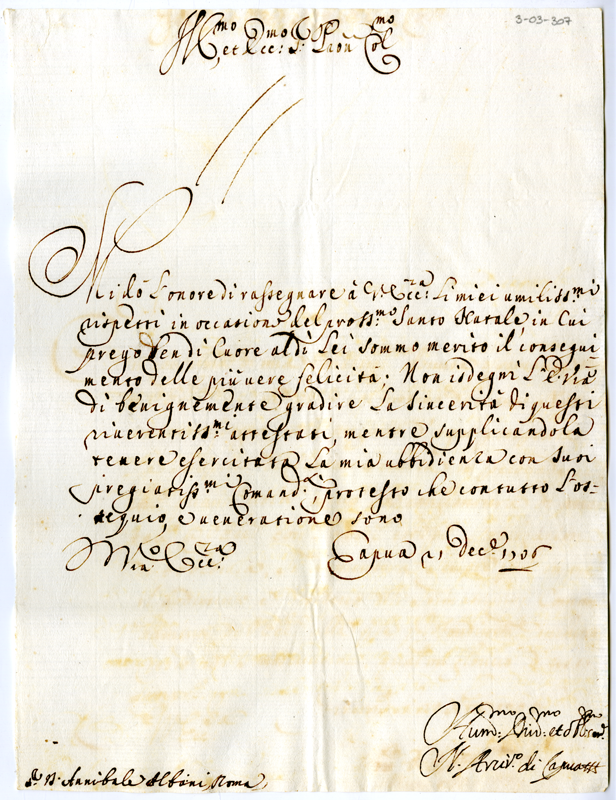 3-03-307
Ill.mo et Ecc.mo S.r Pron Col.mo
Mi dò l'onore di rassegnare à V. Ecc.za li miei umiliss.mi
rispetti in occatione del pross.mo Santo Natale, in cui
prego ben di cuore al di Lei sommo merito il consegui
mento delle più vere felicità; Non isdegni l'E. V.ra
di benignemente gradire la sincerità di questi
riverentiss.mi attestati, mentre supplicandola
tenere esercitata la mia ubbidienza con suoi
pregiatiss.mi Comand.i, protesto che con tutto l'os-
sequio, e veneratione sono
Capua 21 Dec.e 1706
Hum.mo Div.mo et
L'Arciv.o di Capua
D. Annibale Albani, Roma